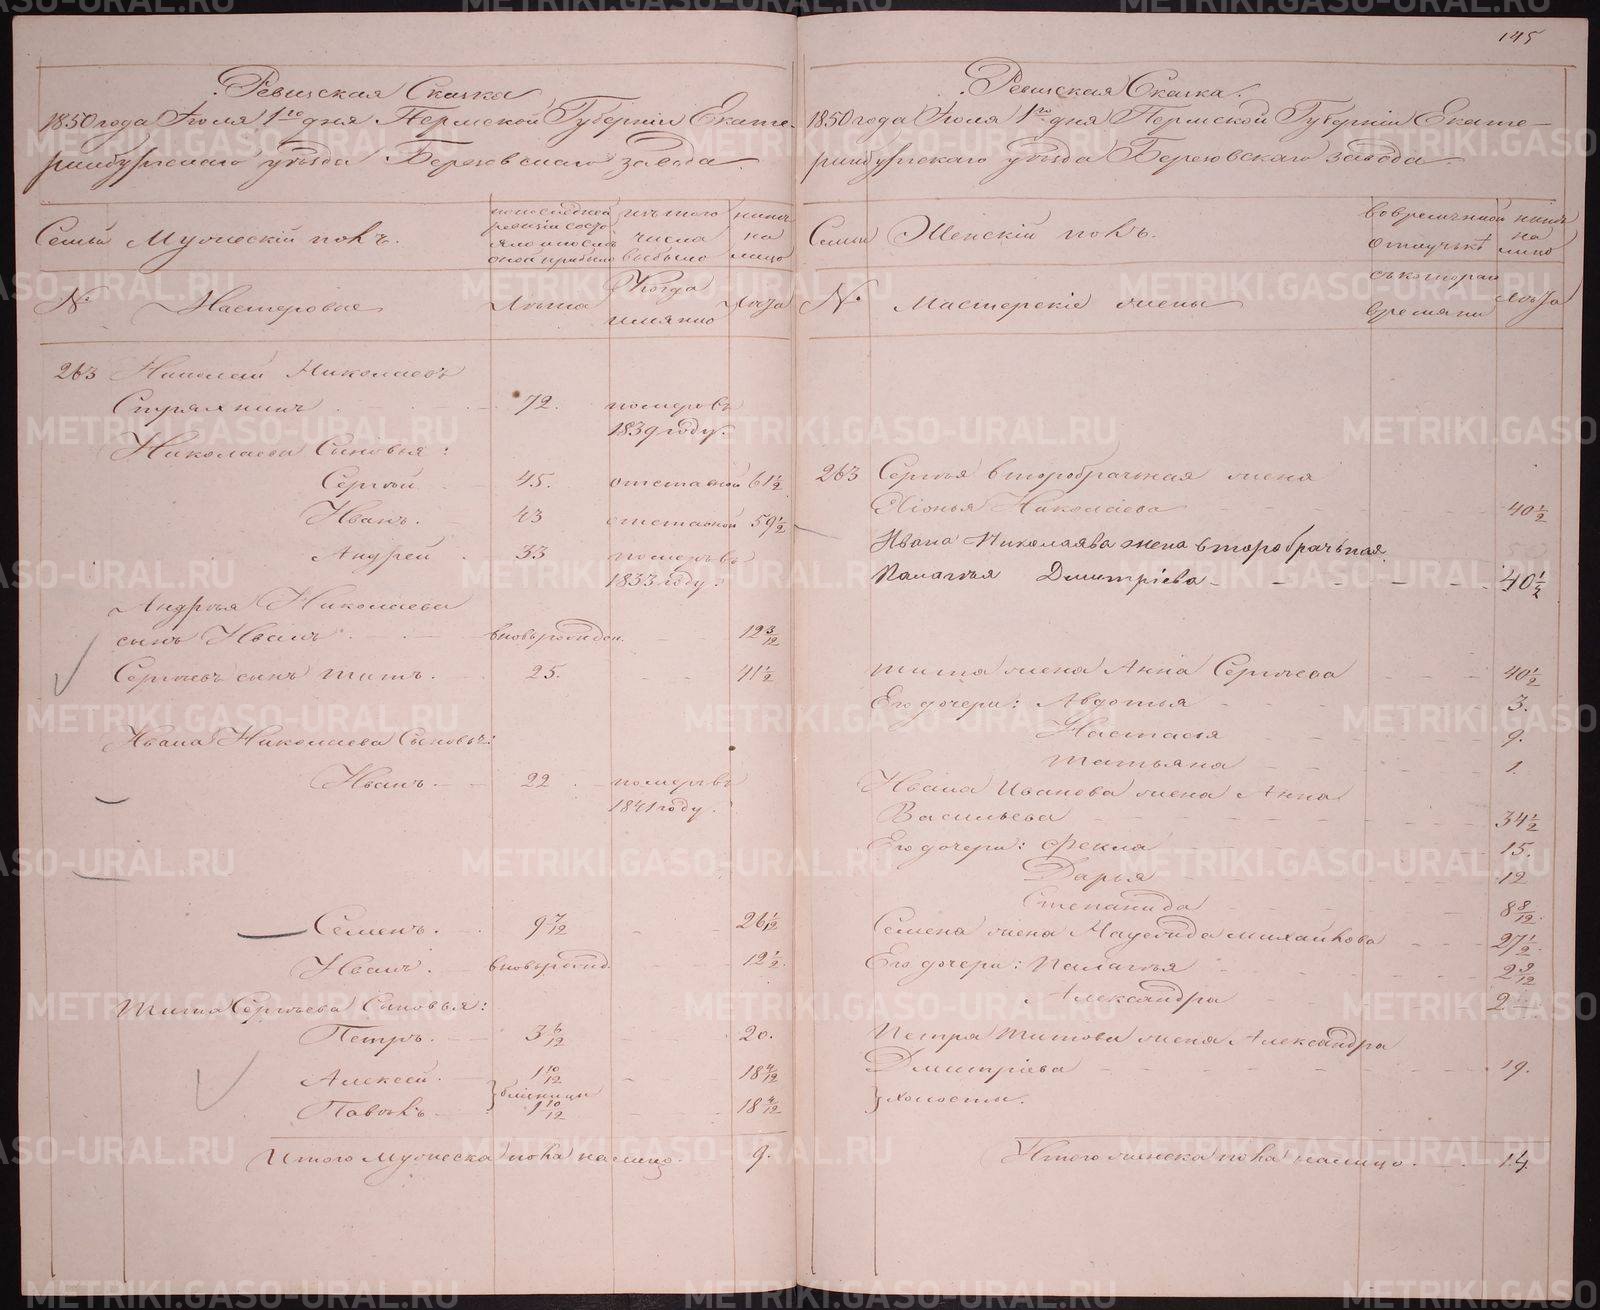 Ревизская Сказка
1850 года Июля 1го дня Пермской Губернии Екате-
ринбургскаго уѣзда Березовскаго завода.
Семьи Мужескій полъ.
по последней ревизіи состояло и после оной прибыло
изъ того числа выбыло
нынѣ на лицо
№ Мастеровые
Лѣта
Когда имянно
Лѣта
263 Николаевъ
Стряхнинъ 72. померъ въ
1839 году.
Николаева Сыновья:
Сергѣй 45. отставной 61½
Иванъ. 43 отставной 59½
Андрей 33 померъ въ
1833 году.
Андрѣя Николаева
сынъ Иванъ вновь рожден. 12 3/12
Сергѣевъ сынъ Титъ. 25. 41½
Ивана Николаева Сыновья:
Иванъ. 22 померъ въ
1841 году.
Семенъ. 9 7/12 26 1/12
Иванъ. вновь рожд. 12½.
Тита Сергѣева Сыновья:
Петръ. 3 6/12 20.
Алексей. 1 10/12 18 4/12
близнецы
Павелъ. 1 10/12 18 4/12
Итого мужеска пола налицо. 9.
145
Ревизская Сказка.
1850 года Июля 1го дня Пермской Губерніи Екате-
ринбургскаго уѣзда Березовскаго завода
Семьи Женскій полъ.
во временной отлучкѣ
нынѣ на лицо
№ Мастерскіе жены
съ которыхъ времяни
Лѣта
263 Сергѣя второбрачная жена
Хіонья Николаева 40½
Ивана Николаява жена второбрачьная
Палагѣя Дмитріева 40½
Тита жена Анна Сергѣева 40½
Его дочери: Авдотья 3.
Настасья 9.
Татьяна 1.
Ивана Иванова жена Анна
Васильева 34½
Его дочери: Фекла 15.
Дарья 12
Степанида 8 8/12.
Семена жена Михайлова 27½.
Его дочери: Палагѣя 2 9/12
Александра
Петра Титова жена Александра
Дмитріева 19.
холосты.
Итого женска пола налицо. 14.
METRIKI.GASO-URAL.RU